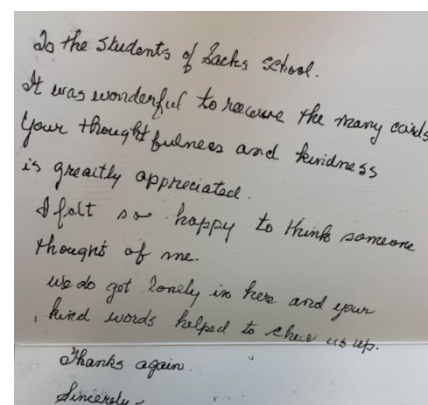 To the students of Sacks school.
It was wonderful to receive the many cards
Your thoughtfulness and kindness
is greaitly appreciated.
I felt so happy to think someone
thought of me.
We do get lonely in here and your
kind words helped to cheer us up.
Thanks again
Sincerely